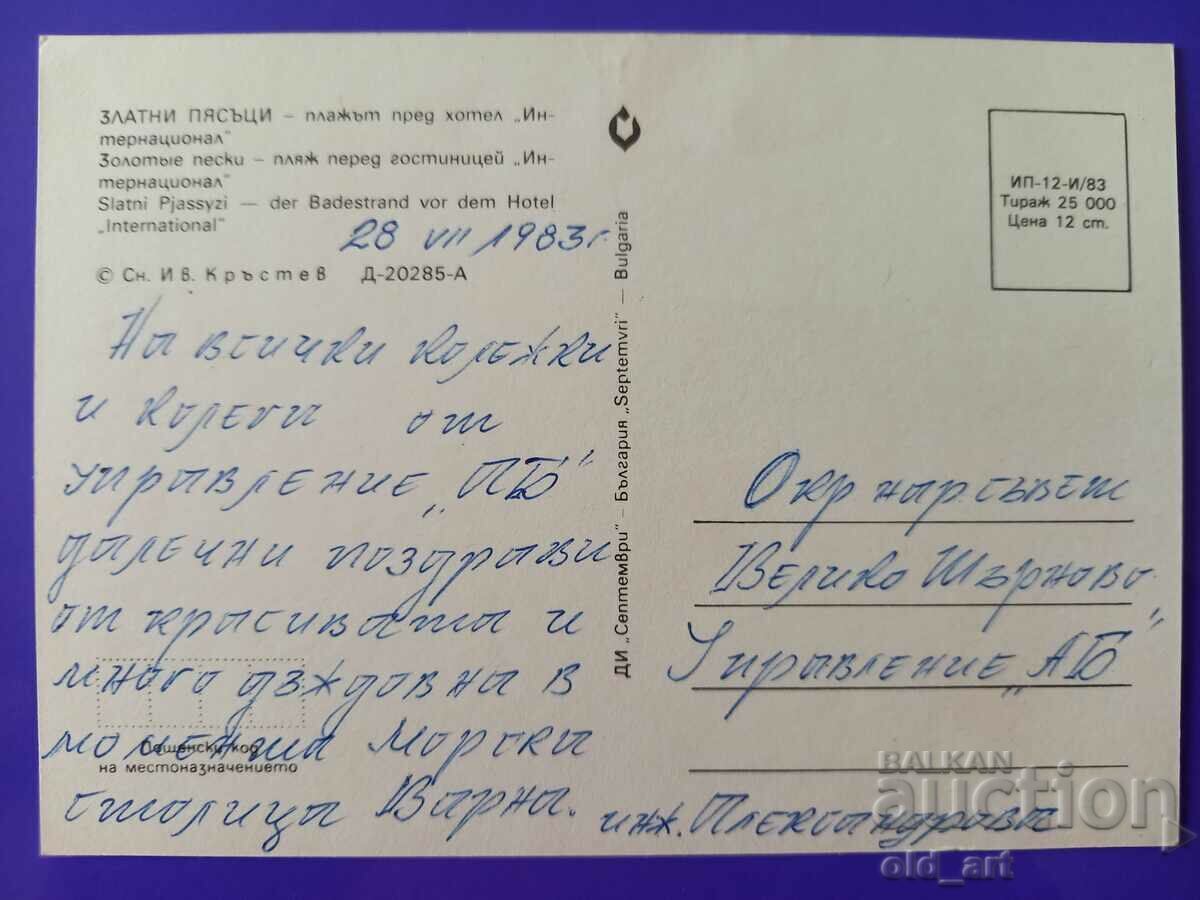 ЗЛАТНИ ПЯСЪЦИ – плажът пред хотел „Ин-
тернационал"
Золотые пески – пляж перед гостиницей „Ин-
тернационал"
Slatni Pjassyzi — der Badestrand vor dem Hotel
„International"
28 VII 1983 г.
© Сн. Ив. Кръстев Д-20285-А
На всички колежки
и колеги от
управление „АБ"
далечни поздрави
от красивата и
много дъждовна в
момента Морска
столица Варна.
инж. Александрова
Пощенски код
на местоназначението
ДИ „Септември" — България „Septemvri" — Bulgaria
ИП-12-И/83
Тираж 25 000
Цена 12 ст.
Окр нар. съвет
Велико Търново
Управление „АБ"
BALKAN
auction
old_art